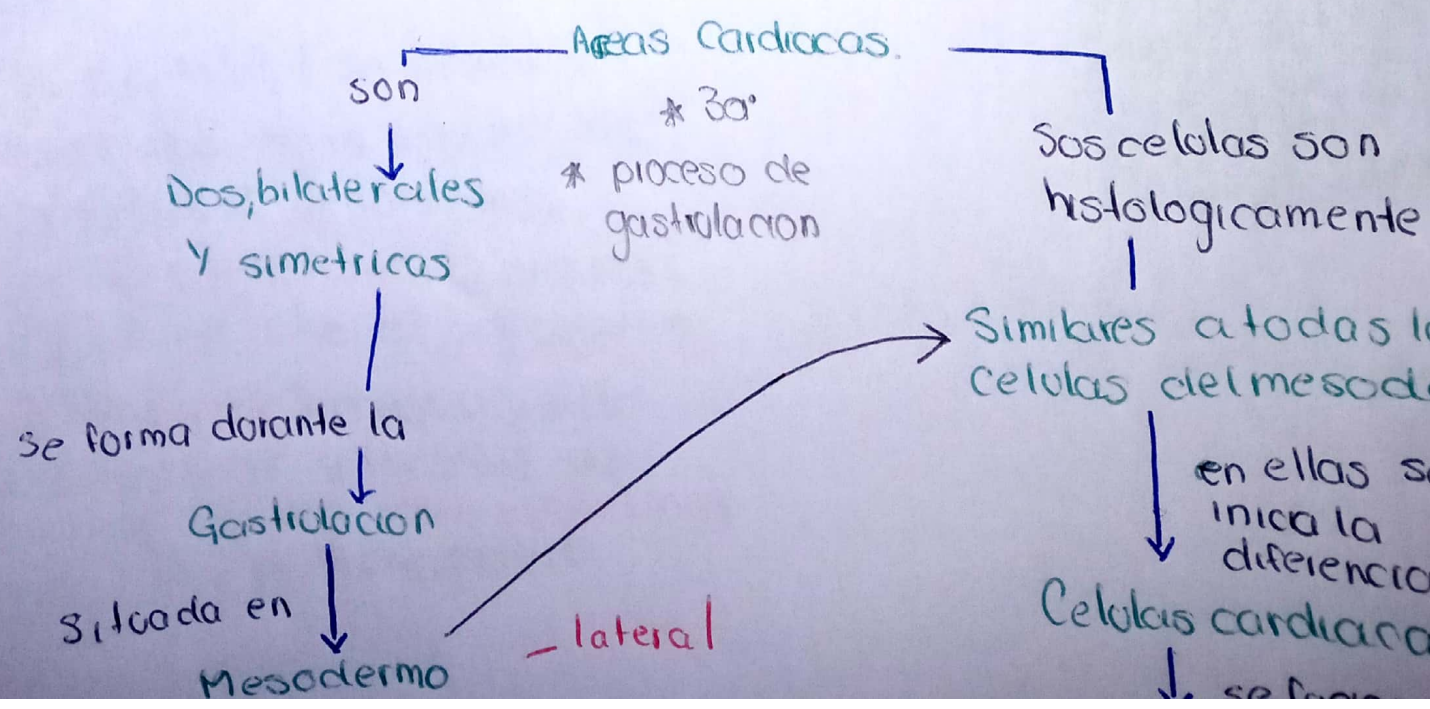 Areas Cardiacas.
son
* 3a°
* proceso de
gastrulacion
Dos, bilaterales
y simetricas
se forma durante la
Gastrulacion
Situada en
Mesodermo
- lateral
Sus celulas son
histologicamente
Similares a todas
celulas del
en ellas
inica la
Celulas
se